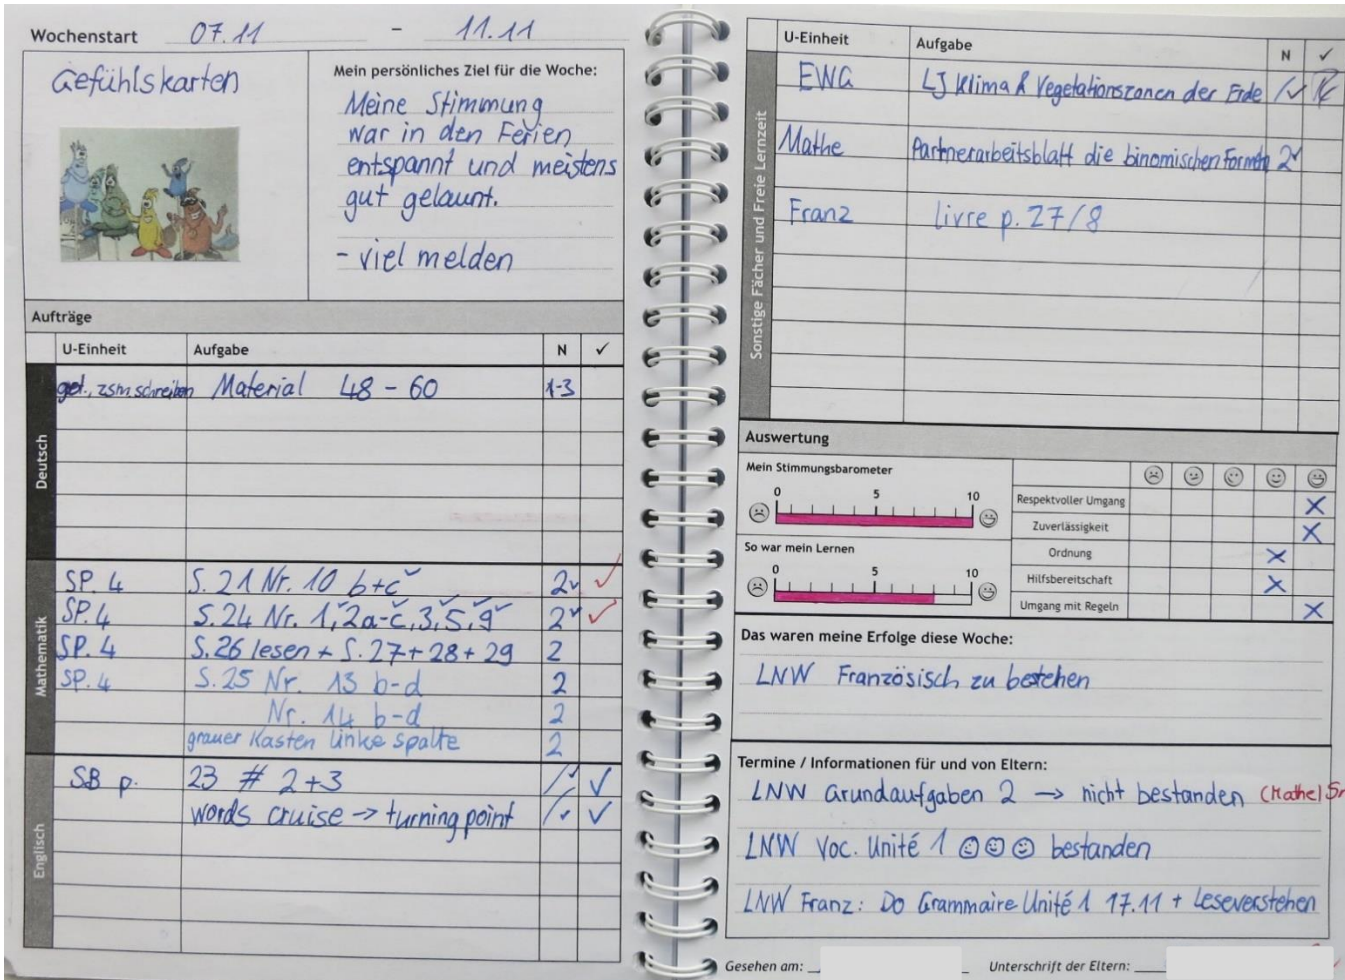 Wochenstart 07.11 - 11.11
Gefühlskarten
Mein persönliches Ziel für die Woche:
Meine Stimmung
war in den Ferien
entspannt und meistens
gut gelaunt.
- viel melden
Aufträge
U-Einheit Aufgabe N ✓
Deutsch
get., zsm. schreiben Material 48 - 60 1-3
Mathematik
SP. 4 S. 21 Nr. 10 b+c ✓ 2 ✓ ✓
SP. 4 S. 24 Nr. 1, 2a-c, 3, 5, 9 2 ✓ ✓
SP. 4 S. 26 lesen + S. 27 + 28 + 29 2
SP. 4 S. 25 Nr. 13 b-d 2
Nr. 14 b-d 2
grauer Kasten linke Spalte 2
Englisch
SB p. 23 # 2+3 / ✓ ✓
words cruise → turning point / ✓ ✓
Sonstige Fächer und Freie Lernzeit
U-Einheit Aufgabe N ✓
EWG LJ Klima & Vegetationszonen der Erde / ✓
Mathe Partnerarbeitsblatt die binomischen Formeln 2 ✓
Franz livre p. 27/8
Auswertung
Mein Stimmungsbarometer
0 5 10
So war mein Lernen
0 5 10
Respektvoller Umgang X
Zuverlässigkeit X
Ordnung X
Hilfsbereitschaft X
Umgang mit Regeln X
Das waren meine Erfolge diese Woche:
LNW Französisch zu bestehen
Termine / Informationen für und von Eltern:
LNW Grundaufgaben 2 → nicht bestanden (Mathe)
LNW Voc. Unité 1 ☺☺☺ bestanden
LNW Franz: Do Grammaire Unité 1 17.11 + Leseverstehen
Gesehen am: Unterschrift der Eltern: